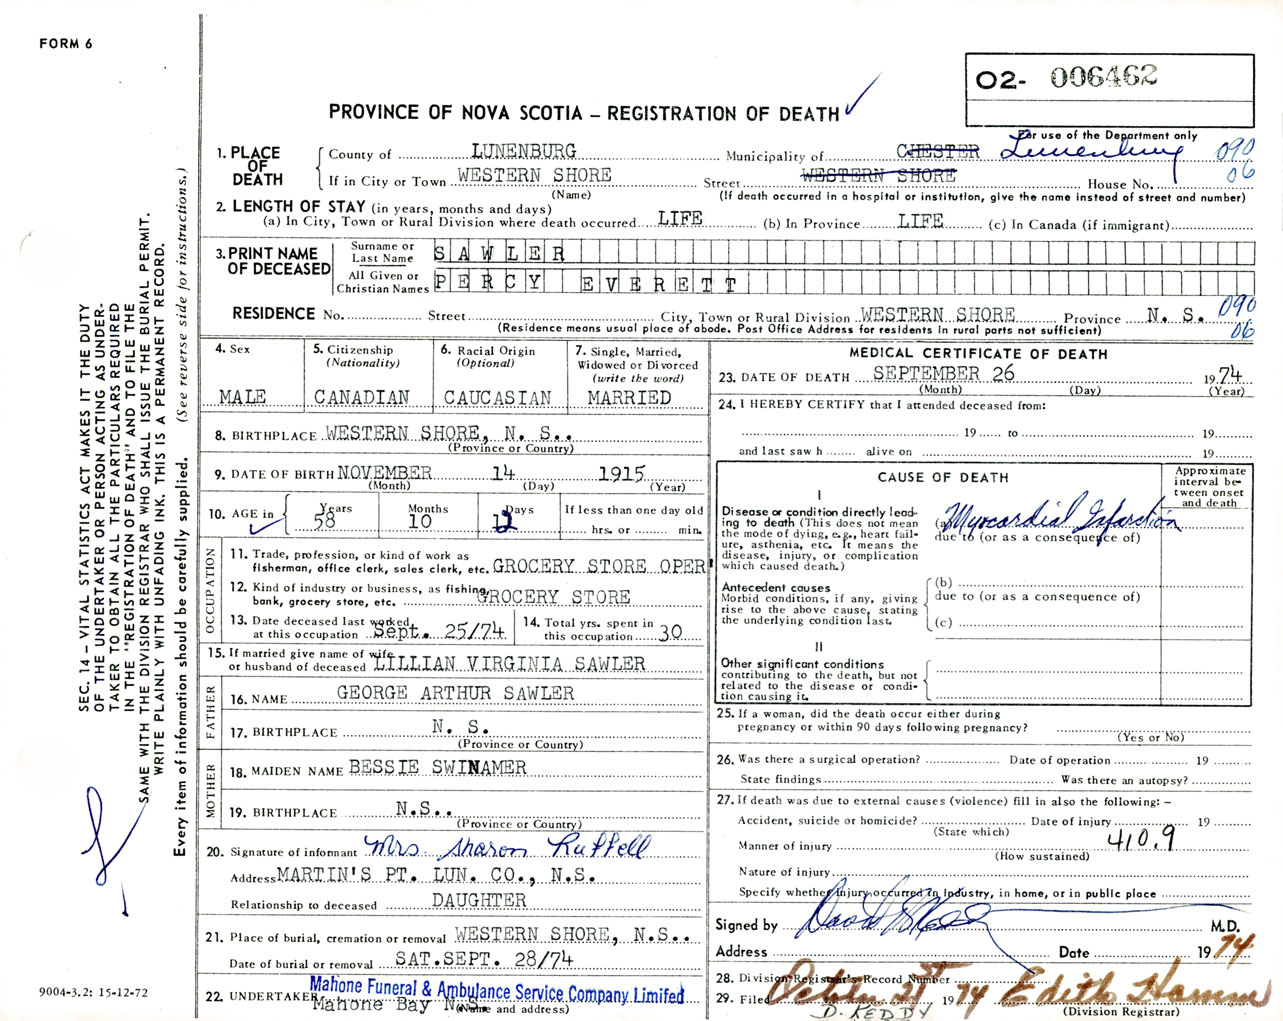 FORM 6
O2- 006462
PROVINCE OF NOVA SCOTIA – REGISTRATION OF DEATH
For use of the Department only
1. PLACE OF DEATH
County of LUNENBURG Municipality of CHESTER Lunenburg 090
If in City or Town WESTERN SHORE Street WESTERN SHORE House No. 06
(Name) (If death occurred in a hospital or institution, give the name instead of street and number)
2. LENGTH OF STAY (in years, months and days)
(a) In City, Town or Rural Division where death occurred LIFE (b) In Province LIFE (c) In Canada (if immigrant)
3. PRINT NAME OF DECEASED
Surname or Last Name SAWLER
All Given or Christian Names PERCY EVERETT
RESIDENCE No. Street City, Town or Rural Division WESTERN SHORE Province N. S. 090
(Residence means usual place of abode. Post Office Address for residents in rural parts not sufficient) 06
4. Sex
MALE
5. Citizenship
(Nationality)
CANADIAN
6. Racial Origin
(Optional)
CAUCASIAN
7. Single, Married,
Widowed or Divorced
(write the word)
MARRIED
8. BIRTHPLACE WESTERN SHORE, N. S..
(Province or Country)
9. DATE OF BIRTH NOVEMBER 14 1915
(Month) (Day) (Year)
10. AGE in
Years Months Days If less than one day old
58 10 12 hrs. or min.
OCCUPATION
11. Trade, profession, or kind of work as
fisherman, office clerk, sales clerk, etc. GROCERY STORE OPER
12. Kind of industry or business, as fishing,
bank, grocery store, etc. GROCERY STORE
13. Date deceased last worked
at this occupation Sept. 25/74
14. Total yrs. spent in
this occupation 30
15. If married give name of wife
or husband of deceased LILLIAN VIRGINIA SAWLER
FATHER
16. NAME GEORGE ARTHUR SAWLER
17. BIRTHPLACE N. S.
(Province or Country)
MOTHER
18. MAIDEN NAME BESSIE SWINAMER
19. BIRTHPLACE N.S..
(Province or Country)
20. Signature of informant Mrs. Sharon
Address MARTIN'S PT. LUN. CO., N.S.
Relationship to deceased DAUGHTER
21. Place of burial, cremation or removal WESTERN SHORE, N.S..
Date of burial or removal SAT.SEPT. 28/74
Mahone Funeral & Ambulance Service Company Limited
22. UNDERTAKER Mahone Bay N.S.
(Name and address)
MEDICAL CERTIFICATE OF DEATH
23. DATE OF DEATH SEPTEMBER 26 1974
(Month) (Day) (Year)
24. I HEREBY CERTIFY that I attended deceased from:
19 to 19
and last saw h alive on 19
CAUSE OF DEATH
Approximate
interval be-
tween onset
and death
I
Disease or condition directly lead-
ing to death (This does not mean
the mode of dying, e.g., heart fail-
ure, asthenia, etc. It means the
disease, injury, or complication
which caused death.)
(a) Myocardial Infarction
due to (or as a consequence of)
Antecedent causes
Morbid conditions, if any, giving
rise to the above cause, stating
the underlying condition last.
(b)
due to (or as a consequence of)
(c)
II
Other significant conditions
contributing to the death, but not
related to the disease or condi-
tion causing it.
25. If a woman, did the death occur either during
pregnancy or within 90 days following pregnancy?
(Yes or No)
26. Was there a surgical operation? Date of operation 19
State findings Was there an autopsy?
27. If death was due to external causes (violence) fill in also the following: –
Accident, suicide or homicide? Date of injury 19
(State which)
Manner of injury 410.9
(How sustained)
Nature of injury
Specify whether injury occurred in Industry, in home, or in public place
Signed by M.D.
Address Date 1974
28. Division Registrar's Record Number
29. Filed October 21st 1974 Edith Hamm
D. KEDDY (Division Registrar)
SEC. 14 – VITAL STATISTICS ACT MAKES IT THE DUTY
OF THE UNDERTAKER OR PERSON ACTING AS UNDER-
TAKER TO OBTAIN ALL THE PARTICULARS REQUIRED
IN THE "REGISTRATION OF DEATH" AND TO FILE THE
SAME WITH THE DIVISION REGISTRAR WHO SHALL ISSUE THE BURIAL PERMIT.
WRITE PLAINLY WITH UNFADING INK. THIS IS A PERMANENT RECORD.
Every item of information should be carefully supplied. (See reverse side for instructions.)
9004-3.2: 15-12-72